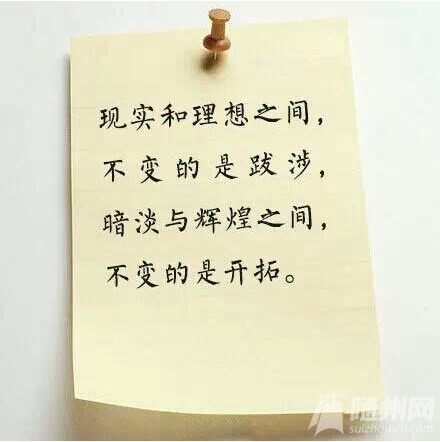 现实和理想之间，
不变的是跋涉，
暗淡与辉煌之间，
不变的是开拓。
随州网
suizhoushi.com